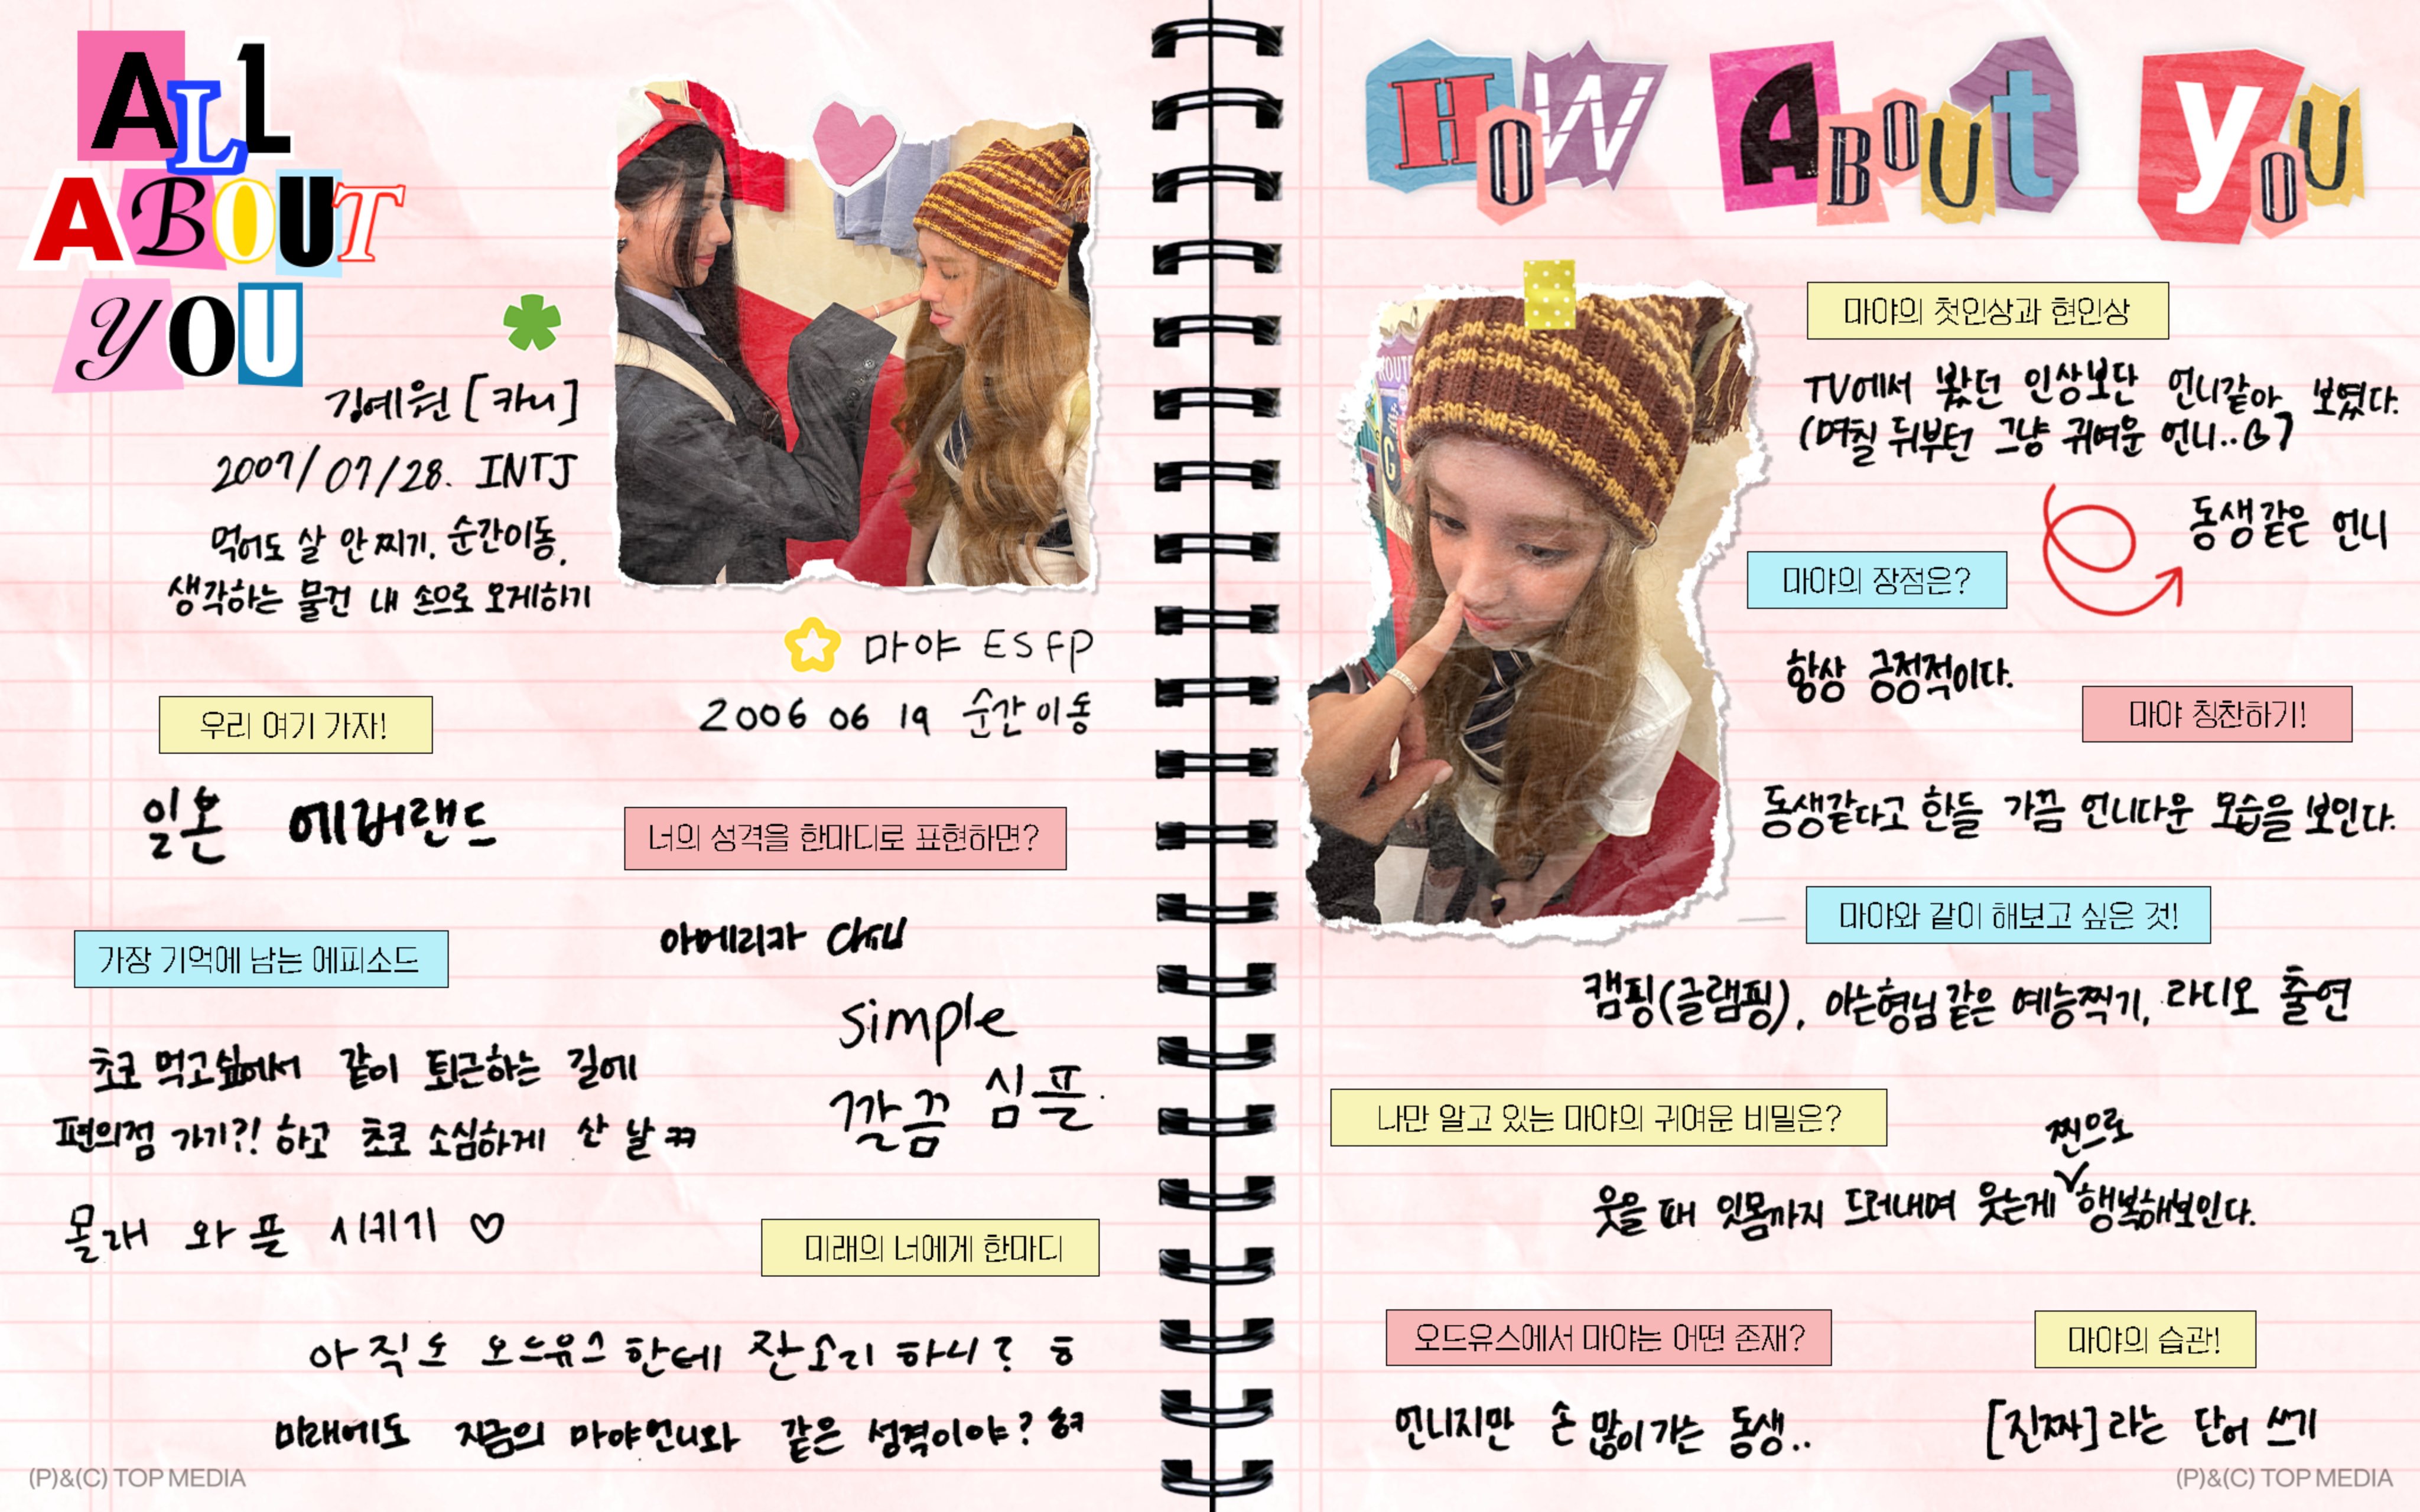 ALL
ABOUT
YOU
김예원 [카니]
2007/07/28. INTJ
먹어도 살 안 찌기, 순간이동,
생각하는 물건 내 손으로 오게하기
마야 ESFP
2006 06 19 순간이동
우리 여기 가자!
일본 에버랜드
너의 성격을 한마디로 표현하면?
아메리카 chill
simple
깔끔 심플.
가장 기억에 남는 에피소드
초코 먹고싶에서 같이 퇴근하는 길에
편의점 가기?! 하고 초코 소심하게 산 날 ㅋㅋ
몰래 와플 시키기 ♡
미래의 너에게 한마디
아직도 오드유스한테 잔소리 하니? ㅎ
미래에도 지금의 마야언니와 같은 성격이야? ㅎㅋ
(P)&(C) TOP MEDIA
HOW ABOUT YOU
마야의 첫인상과 현인상
TV에서 봤던 인상보단 언니같아 보였다.
(며칠 뒤부턴 그냥 귀여운 언니..
동생같은 언니
마야의 장점은?
항상 긍정적이다.
마야 칭찬하기!
동생같다고 한들 가끔 언니다운 모습을 보인다.
마야와 같이 해보고 싶은 것!
캠핑(글램핑), 아는형님 같은 예능찍기, 라디오 출연
나만 알고 있는 마야의 귀여운 비밀은?
찐으로
웃을 때 잇몸까지 드러내며 웃는게 행복해보인다.
오드유스에서 마야는 어떤 존재?
언니지만 손 많이 가는 동생..
마야의 습관!
[진짜]라는 단어 쓰기
(P)&(C) TOP MEDIA